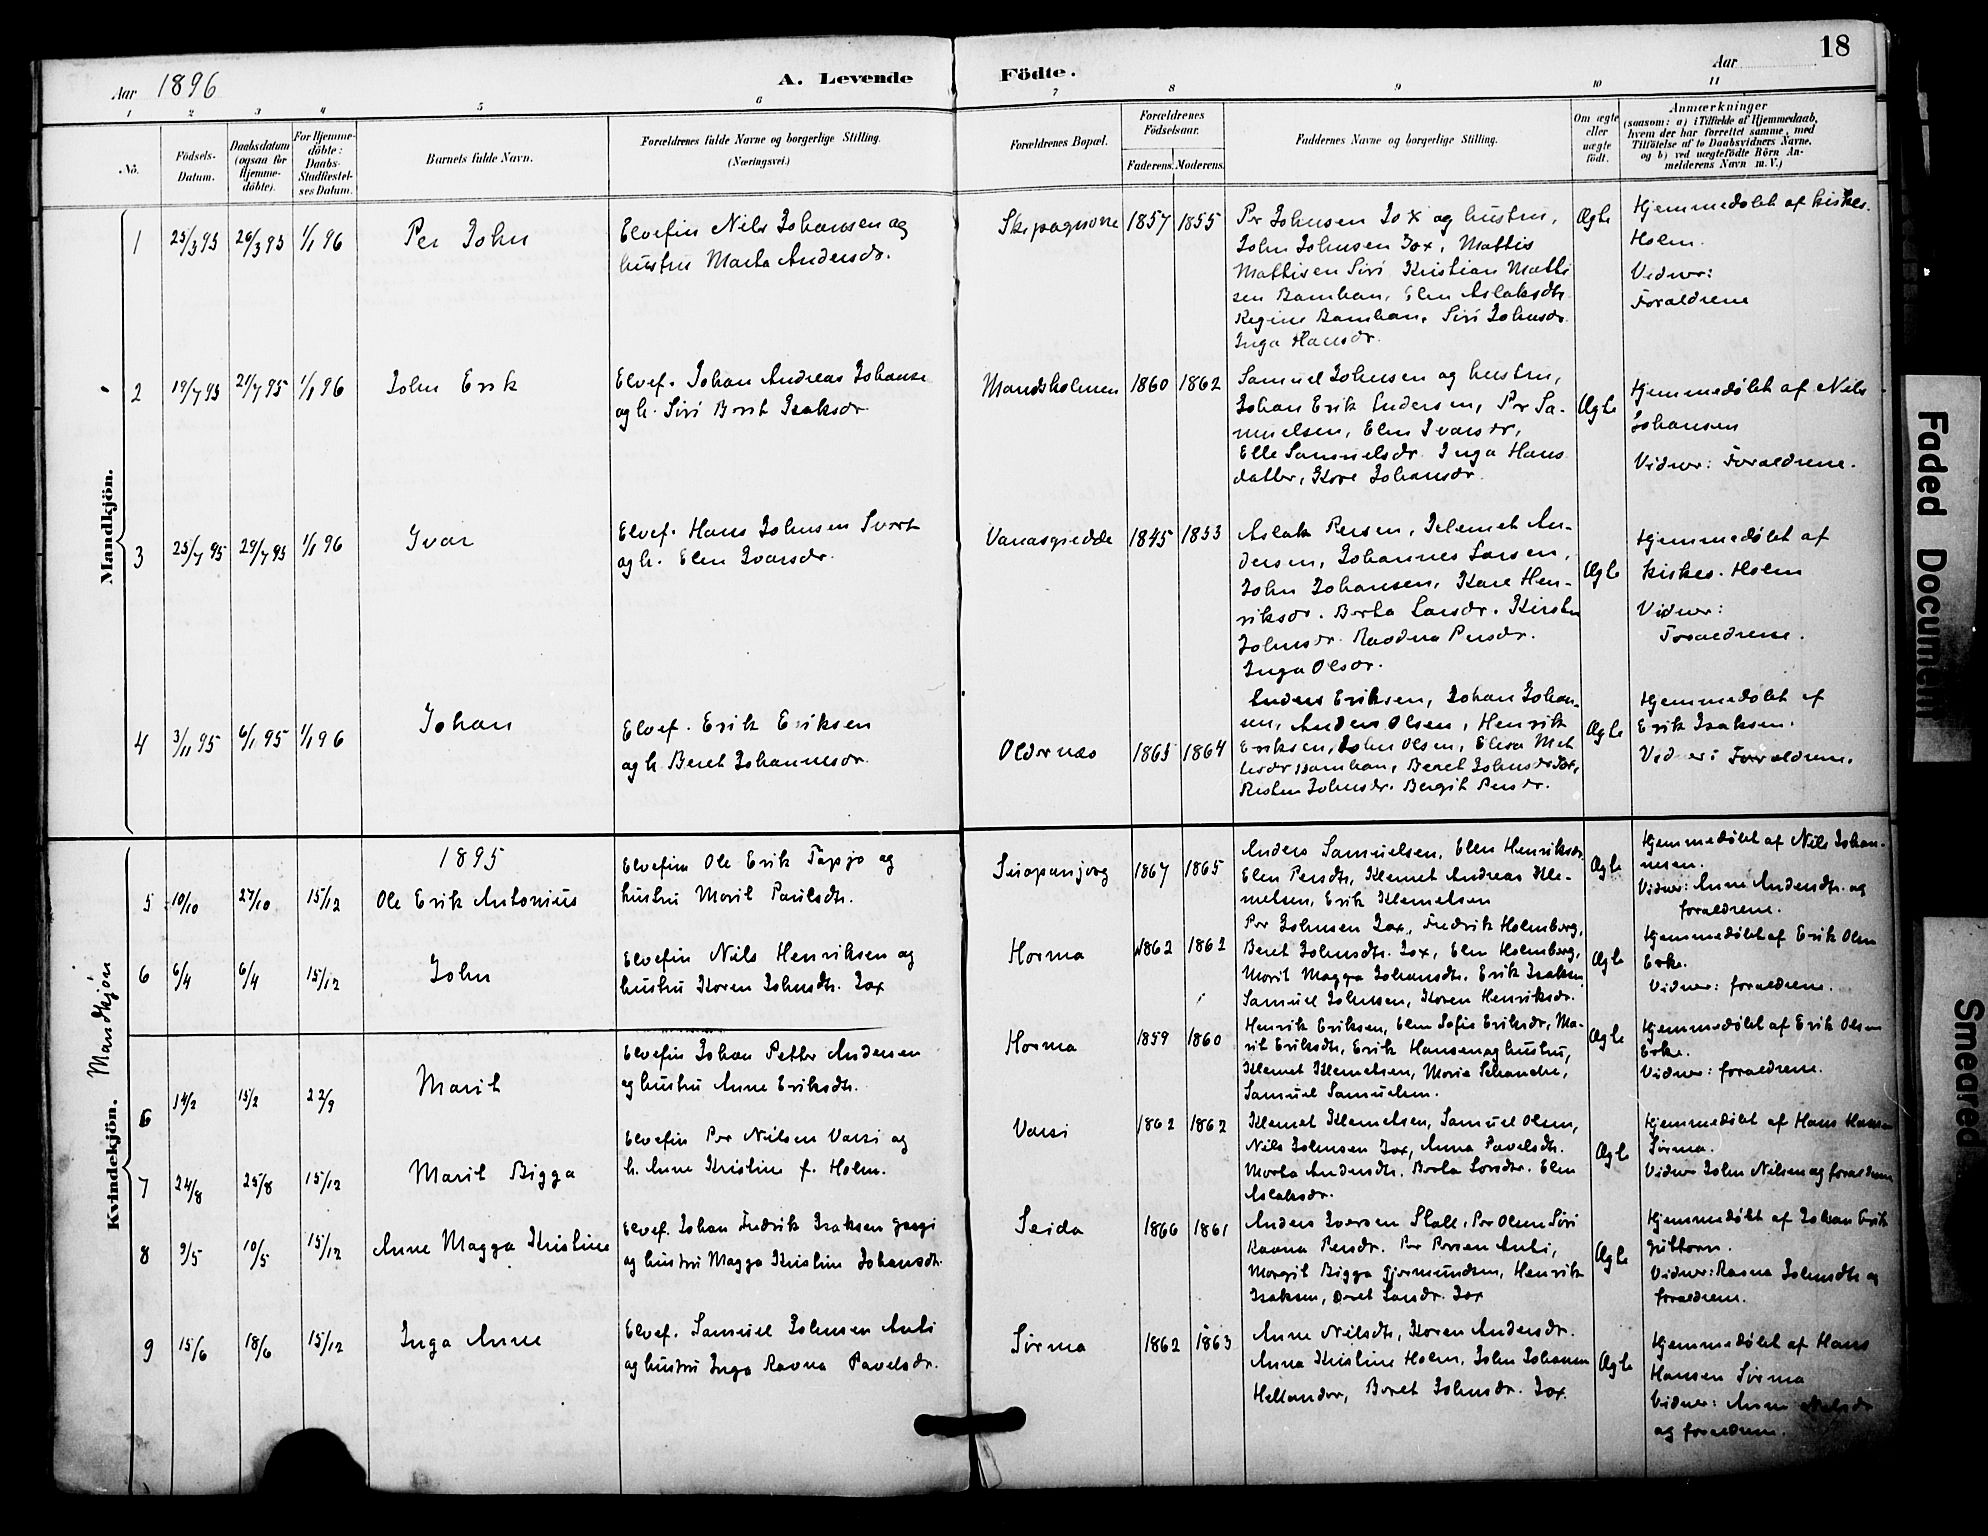 Aar 1896
A. Levende
Födte.
Aar
18
1 2 3 4 5 6 7 8 9 10 11
No.
Födsels-
Datum.
Daabsdatum
(ogsaa for
Hjemme-
döbte).
For Hjemme-
döbte:
Daabs-
Stadfæstel-
ses Datum.
Barnets fulde Navn.
Forældrenes fulde Navne og borgerlige Stilling.
(Næringsvei.)
Forældrenes Bopæl.
Forældrenes
Födselsaar.
Faderens. Moderens.
Faddernes Navne og borgerlige Stilling.
Om ægte
eller
uægte
født.
Anmærkninger
(saasom: a) i Tilfælde af Hjemmedaab,
hvem der har forrettet samme, med
Tilföielse af to Daabsvidners Navne,
og b) ved uægtefödte Börn An-
melderens Navn m. V.)
Mandkjön.
1 25/3 95 26/3 95 1/1 96 Per John
Elvefin Nils Johansen og
hustru Marta Andersdr.
Skipagurra 1857 1855
Per Johnsen Jox og hustru,
John Johnsen Jox, Mattis
Mathisen Siri Kristian Mathi
sen Banhan, Elen Aslaksdtr
Regine Banhan, Siri Johnsdr.
Inga Hansdr.
Ægte
Hjemmedøbt af kirkes.
Holm.
Vidner:
Forældrene
2 19/7 95 21/7 95 1/1 96 John Erik
Elvef. Johan Andreas Johanse
og h. Siri Berit Isaksdr.
Mandsholmen 1860 1862
Samuel Johnsen og hustru,
Johan Erik Andersen, Per Sa-
muelsen, Elen Ivarsdr,
Elle Samuelsdr. Inga Hans
datter, Kore Johansdr.
Ægte
Hjemmedøbt af Nils
Johansen
Vidner: Forældrene.
3 25/7 95 29/7 95 1/1 96 Ivar
Elvef. Hans Johnsen Svart
og h. Elen Ivarsdr.
1845 1853
Aslak Persen, Klemet An-
dersen, Johannes Larsen,
John Johansen, Kare Hen-
riksdr. Berta Larsdr. Kirsten
Johnsdr. Ravdna Persdr.
Inga Olsdr.
Ægte
Hjemmedøbt af
kirkes. Holm
Vidner:
Forældrene.
4 3/11 95 6/1 95 1/1 96 Johan
Elvef. Erik Eriksen
og h. Beret Johannesdr.
Oldernæs 1865 1864
Anders Eriksen, Johan Johan-
sen, Anders Olsen, Henrik
Eriksen, John Olsen, Elisa Mat
hisdr Banhan, Beret Johnsdr Jox,
Risten Johnsdr. Bergit Persdr.
Ægte
Hjemmedøbt af
Erik Isaksen.
Vidner: Forældrene.
Mandkjøn
1895
5 10/10 27/10 15/12 Ole Erik Antonius
Elvefin Ole Erik Tapjo og
hustru Marit Paulsdtr.
1867 1865
Anders Samuelsen, Elen Henriksdr,
Elen Persdtr, Klemet Andreas Kle-
metsen, Erik Klemetsen
Ægte
Hjemmedøbt af Nils Johan-
nesen.
Vidner: Anne Andersdtr. og
forældrene.
6 6/4 6/4 15/12 John
Elvefin Nils Henriksen og
hustru Koren Johnsdtr. Jox
Horma 1862 1862
Per Johnsen Jox, Fredrik Holmberg,
Beret Johnsdtr. Jox, Elen Holmberg,
Marit Magga Johansdtr. Erik Isaksen
Samuel Johnsen, Koren Henriksdr.
Ægte
Hjemmedøbt af Erik Olsen
Erke.
Vidner: forældrene.
Kvindekjön.
6 14/2 15/2 22/9 Marit
Elvefin Johan Petter Andersen
og hustru Anne Eriksdtr.
Horma 1859 1860
Henrik Eriksen, Elen Sofie Eriksdr, Ma-
rit Eriksdtr, Erik Hansen og hustru,
Klemet Klemetsen, Marie Schanche,
Samuel Samuelsen.
Ægte
Hjemmedøbt af Erik Olsen
Erke.
Vidner: forældrene.
7 24/8 25/8 15/12 Marit Bigga
Elvefin Per Nilsen Varsi og
h. Anne Kristine f. Holm.
Varsi 1862 1862
Klemet Klemetsen, Samuel Olsen,
Nils Johnsen Jox, Anna Pavelsdtr.
Marta Andersdtr. Berta Larsdtr. Elen
Aslaksdr.
Ægte
Hjemmedøbt af Hans Hansen
Sirma.
Vidner John Nilsen og forældrene
8 9/5 10/5 15/12 Anne Magga Kristine
Elvef. Johan Fredrik Isaksen
og hustru Magga Kristine Johansdtr.
Seida 1866 1861
Anders Iversen Stall, Per Olsen Siri
Ravna Persdr. Per Persen Anti,
Margit Bigga Gjermundsen, Henrik
Isaksen, Beret Larsdr. Jox
Ægte
Hjemmedøbt af Johan Erik
Guttorm.
Vidner: Ravna Johnsdtr og
forældrene.
9 15/6 18/6 15/12 Inga Anne
Elvef. Samuel Johnsen Anti
og hustru Inga Ravna Pavelsdr.
Sirma 1862 1863
Anne Nilsdtr, Koren Andersdr.
Anna Kristine Holm, John Johansen
Hellander, Beret Johnsdr. Jox.
Ægte
Hjemmedøbt af Hans
Hansen Sirma
Vidner: Anne Nilsdr
og forældrene.
Faded Document
Smeared